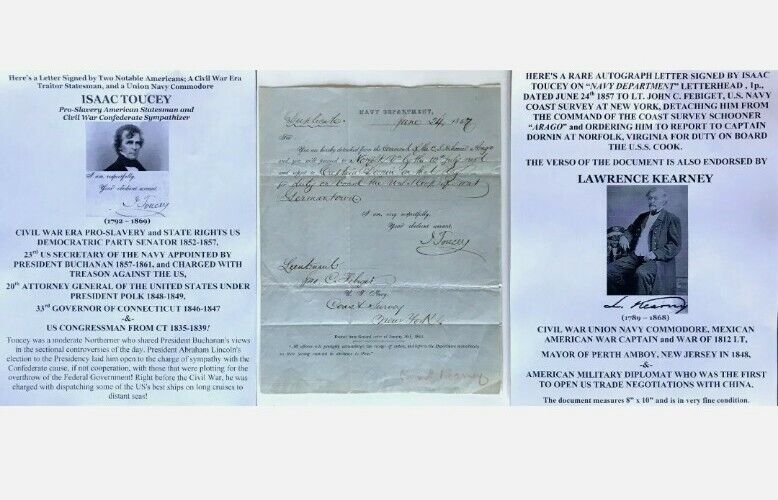 Here's a Letter Signed by Two Notable Americans; A Civil War Era
Traitor Statesman, and a Union Navy Commodore
ISAAC TOUCEY
Pro-Slavery American Statesman and
Civil War Confederate Sympathizer
I am, respectfully,
Your obedient servant,
I. Toucey
(1792 – 1869)
CIVIL WAR ERA PRO-SLAVERY and STATE RIGHTS US
DEMOCRATIC PARTY SENATOR 1852-1857,
23rd US SECRETARY OF THE NAVY APPOINTED BY
PRESIDENT BUCHANAN 1857-1861, and CHARGED WITH
TREASON AGAINST THE US,
20th ATTORNEY GENERAL OF THE UNITED STATES UNDER
PRESIDENT POLK 1848-1849,
33rd GOVERNOR OF CONNECTICUT 1846-1847
-&-
US CONGRESSMAN FROM CT 1835-1839!
Toucey was a moderate Northerner who shared President Buchanan's views
in the sectional controversies of the day. President Abraham Lincoln's
election to the Presidency had laid him open to the charge of sympathy with the
Confederate cause, if not cooperation, with those that were plotting for the
overthrow of the Federal Government! Right before the Civil War, he was
charged with dispatching some of the US's best ships on long cruises to
distant seas!
NAVY DEPARTMENT,
Duplicate. June 24, 1857
Sir
You are hereby detached from the
and you will proceed to Norfolk Va by the
and report to Captain Dornin
for duty on board the
Germantown.
I am, very respectfully,
Your obedient servant,
I. Toucey
Lieutenant
Jno. C. Febiget
U. S. Navy
Coast Survey
New York.
L. Kearney
HERE'S A RARE AUTOGRAPH LETTER SIGNED BY ISAAC
TOUCEY ON "NAVY DEPARTMENT" LETTERHEAD, 1p.,
DATED JUNE 24th 1857 TO LT. JOHN C. FEBIGET, U.S. NAVY
COAST SURVEY AT NEW YORK, DETACHING HIM FROM
THE COMMAND OF THE COAST SURVEY SCHOONER
"ARAGO" and ORDERING HIM TO REPORT TO CAPTAIN
DORNIN AT NORFOLK, VIRGINIA FOR DUTY ON BOARD
THE U.S.S. COOK.
THE VERSO OF THE DOCUMENT IS ALSO ENDORSED BY
LAWRENCE KEARNEY
L. Kearny
(1789 – 1868)
CIVIL WAR UNION NAVY COMMODORE, MEXICAN
AMERICAN WAR CAPTAIN and WAR OF 1812 LT,
MAYOR OF PERTH AMBOY, NEW JERSEY IN 1848,
-&-
AMERICAN MILITARY DIPLOMAT WHO WAS THE FIRST
TO OPEN US TRADE NEGOTIATIONS WITH CHINA.
The document measures 8" x 10" and is in very fine condition.